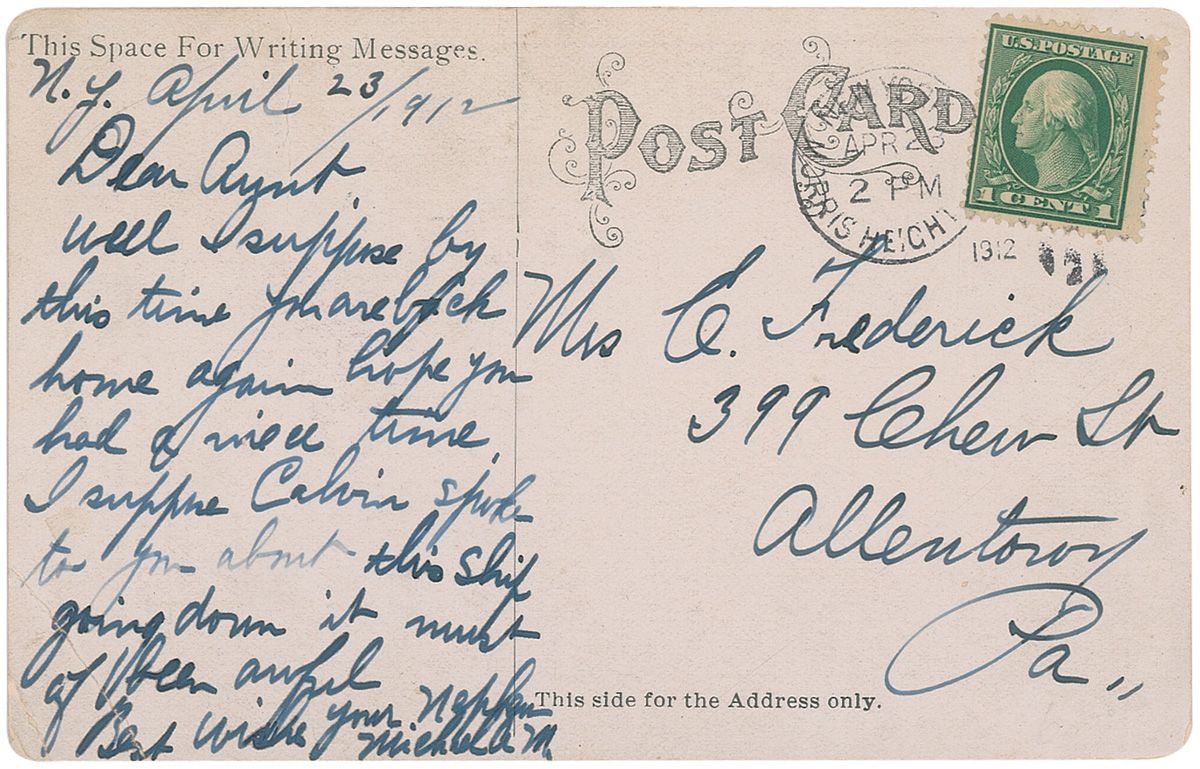 This Space For Writing Messages.
N.Y. April 23/1912
Dear Aynt
well I suppose by
this time you are back
home again hope you
had a nice time
I suppse Calvin spoke
to you about this ship
going down it must
of been awful
Best wishe your Nephew
Michael A M.
POST CARD
NEW YORK
MORRIS HEIGHT
APR 23
2 PM
1912
U.S. POSTAGE
1 CENT 1
Mrs C. Frederick
399 Chew St
Allentown
Pa,,
This side for the Address only.